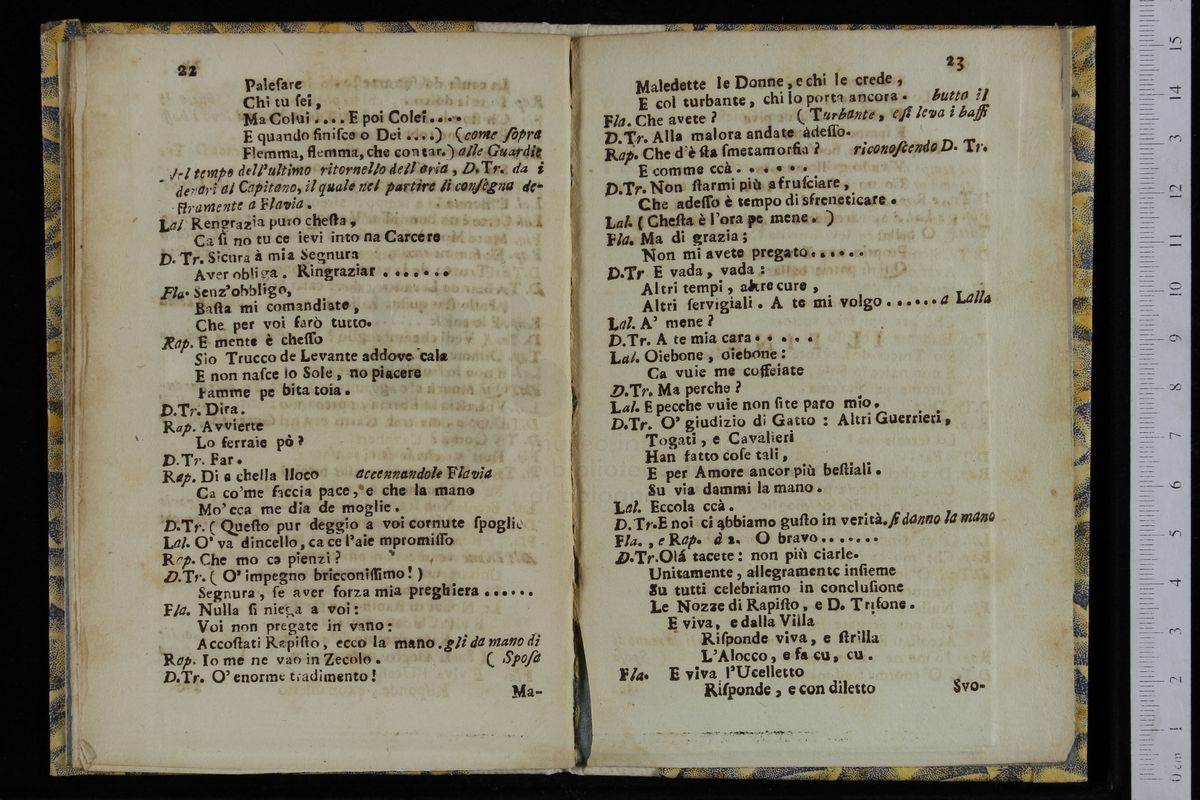 22
Paleſare
Chi tu ſei,
Ma Colui .... E poi Colei....
E quando finiſce o Dei ....) (come ſopra
Flemma, flemma, che contar.) alle Guardie
Nel tempo dell'ultimo ritornello dell'aria, D.Tr. da i
denari al Capitano, il quale nel partire li conſegna de-
ſtramente a Flavia.
Lal Rengrazia puro cheſta,
Ca ſi no tu ce ievi into na Carcere
D. Tr. Sicura à mia Segnura
Aver obliga. Ringraziar .......
Fla. Senz'obbligo,
Baſta mi comandiate,
Che per voi farò tutto.
Rap. E mente è cheſſo
Sio Trucco de Levante addove cala
E non naſce lo Sole, no piacere
Famme pe bita toia.
D.Tr. Dira.
Rap. Avvierte
Lo ferraie pò?
D.Tr. Far.
Rap. Di a chella lloco accennandole Flavia
Ca co'me faccia pace, e che la mano
Mo' cca me dia de moglie.
D.Tr. (Queſto pur deggio a voi cornute ſpoglie
Lal. O' va dincello, ca ce l'aie mpromiſſo
Rap. Che mo ca pienzi?
D.Tr. (O' impegno bricconiſſimo!)
Segnura, ſe aver forza mia preghiera ......
Fla. Nulla ſi niega a voi:
Voi non pregate in vano:
Accoſtati Rapiſto, ecco la mano. gli da mano di
Rap. Io me ne vao in Zecolo. ( Spoſa
D.Tr. O' enorme tradimento!
Ma-
23
Maledette le Donne, e chi le crede,
E col turbante, chi lo porta ancora. butta il
Fla. Che avete? ( Turbante, e ſi leva i baffi
D.Tr. Alla malora andate àdeſſo.
Rap. Che d'è ſta ſmetamorfia? riconoſcendo D. Tr.
E comme ccà......
D.Tr. Non ſtarmi più a fruſciare,
Che adeſſo è tempo di sfreneticare.
Lal. (Cheſta è l'ora pe mene. )
Fla. Ma di grazia;
Non mi avete pregato......
D.Tr E vada, vada:
Altri tempi, altre cure,
Altri ſervigiali. A te mi volgo ...... a Lalla
Lal. A' mene?
D.Tr. A te mia cara.....
Lal. Oiebone, oiebone:
Ca vuie me coffeiate
D.Tr. Ma perche?
Lal. E pecche vuie non ſite paro mio.
D.Tr. O' giudizio di Gatto: Altri Guerrieri,
Togati, e Cavalieri
Han fatto coſe tali,
E per Amore ancor più beſtiali.
Su via dammi la mano.
Lal. Eccola ccà.
D.Tr. E noi ci abbiamo guſto in verità. ſi danno la mano
Fla., e Rap. à 2. O bravo.......
D.Tr. Olá tacete: non più ciarle.
Unitamente, allegramente inſieme
Su tutti celebriamo in concluſione
Le Nozze di Rapiſto, e D. Trifone.
E viva, e dalla Villa
Riſponde viva, e ſtrilla
L'Alocco, e fa cu, cu.
Fla. E viva l'Ucelletto
Riſponde, e con diletto
Svo-